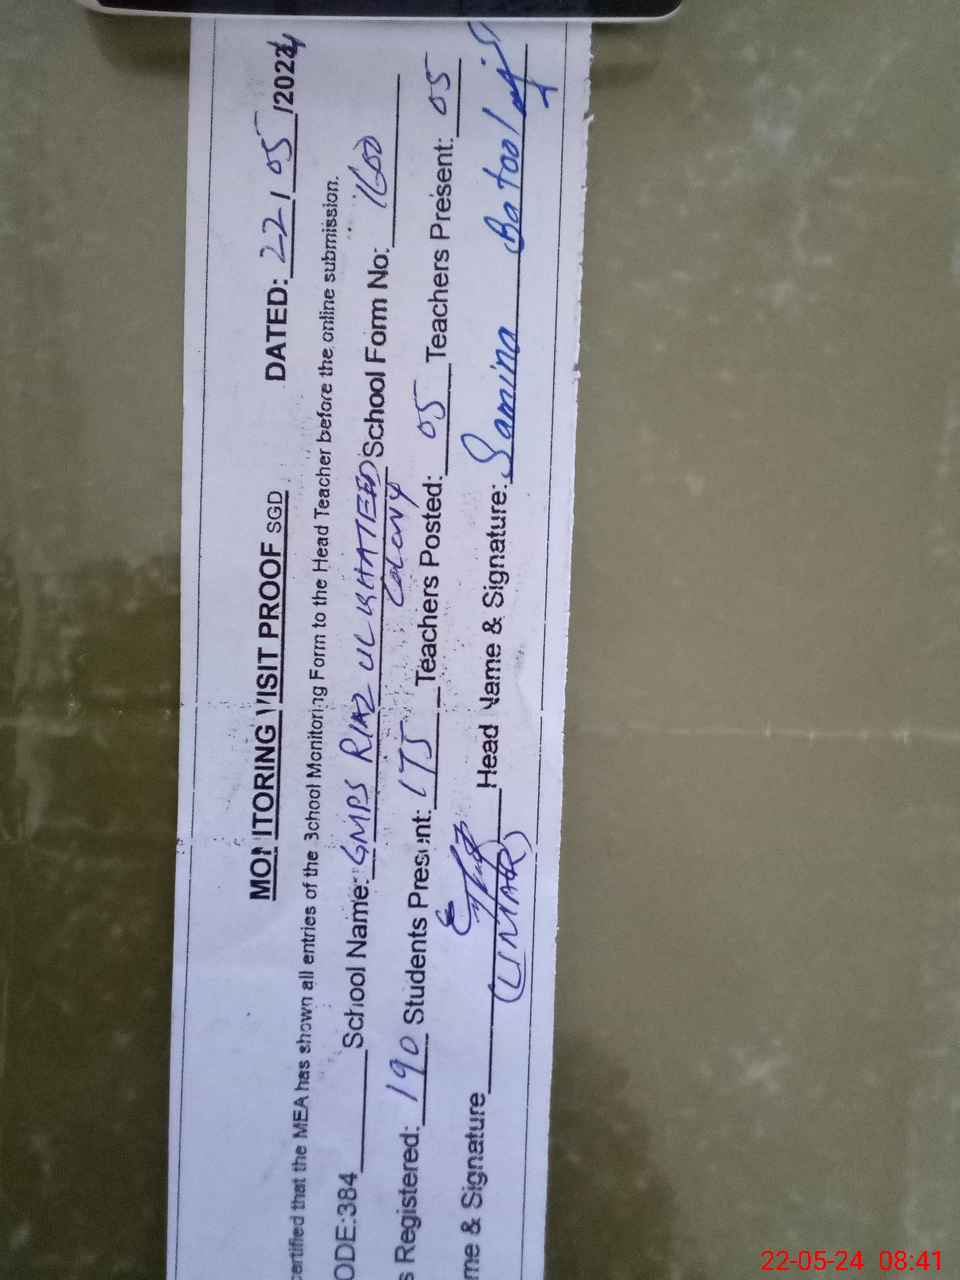 MONITORING VISIT PROOF SGD DATED: 22/05/2024
certified that the MEA has shown all entries of the School Monitoring Form to the Head Teacher before the online submission.
ODE:384 School Name: GMPS RIAZ UL KHATEEB COLONY School Form No: 1600
s Registered: 190 Students Present: 175 Teachers Posted: 05 Teachers Present: 05
me & Signature (UMAR) Head Name & Signature: Samina Batool
22-05-24 08:41